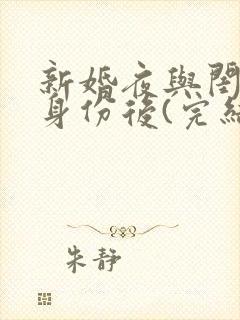 新婚夜與閨
身份後(完結
朱靜